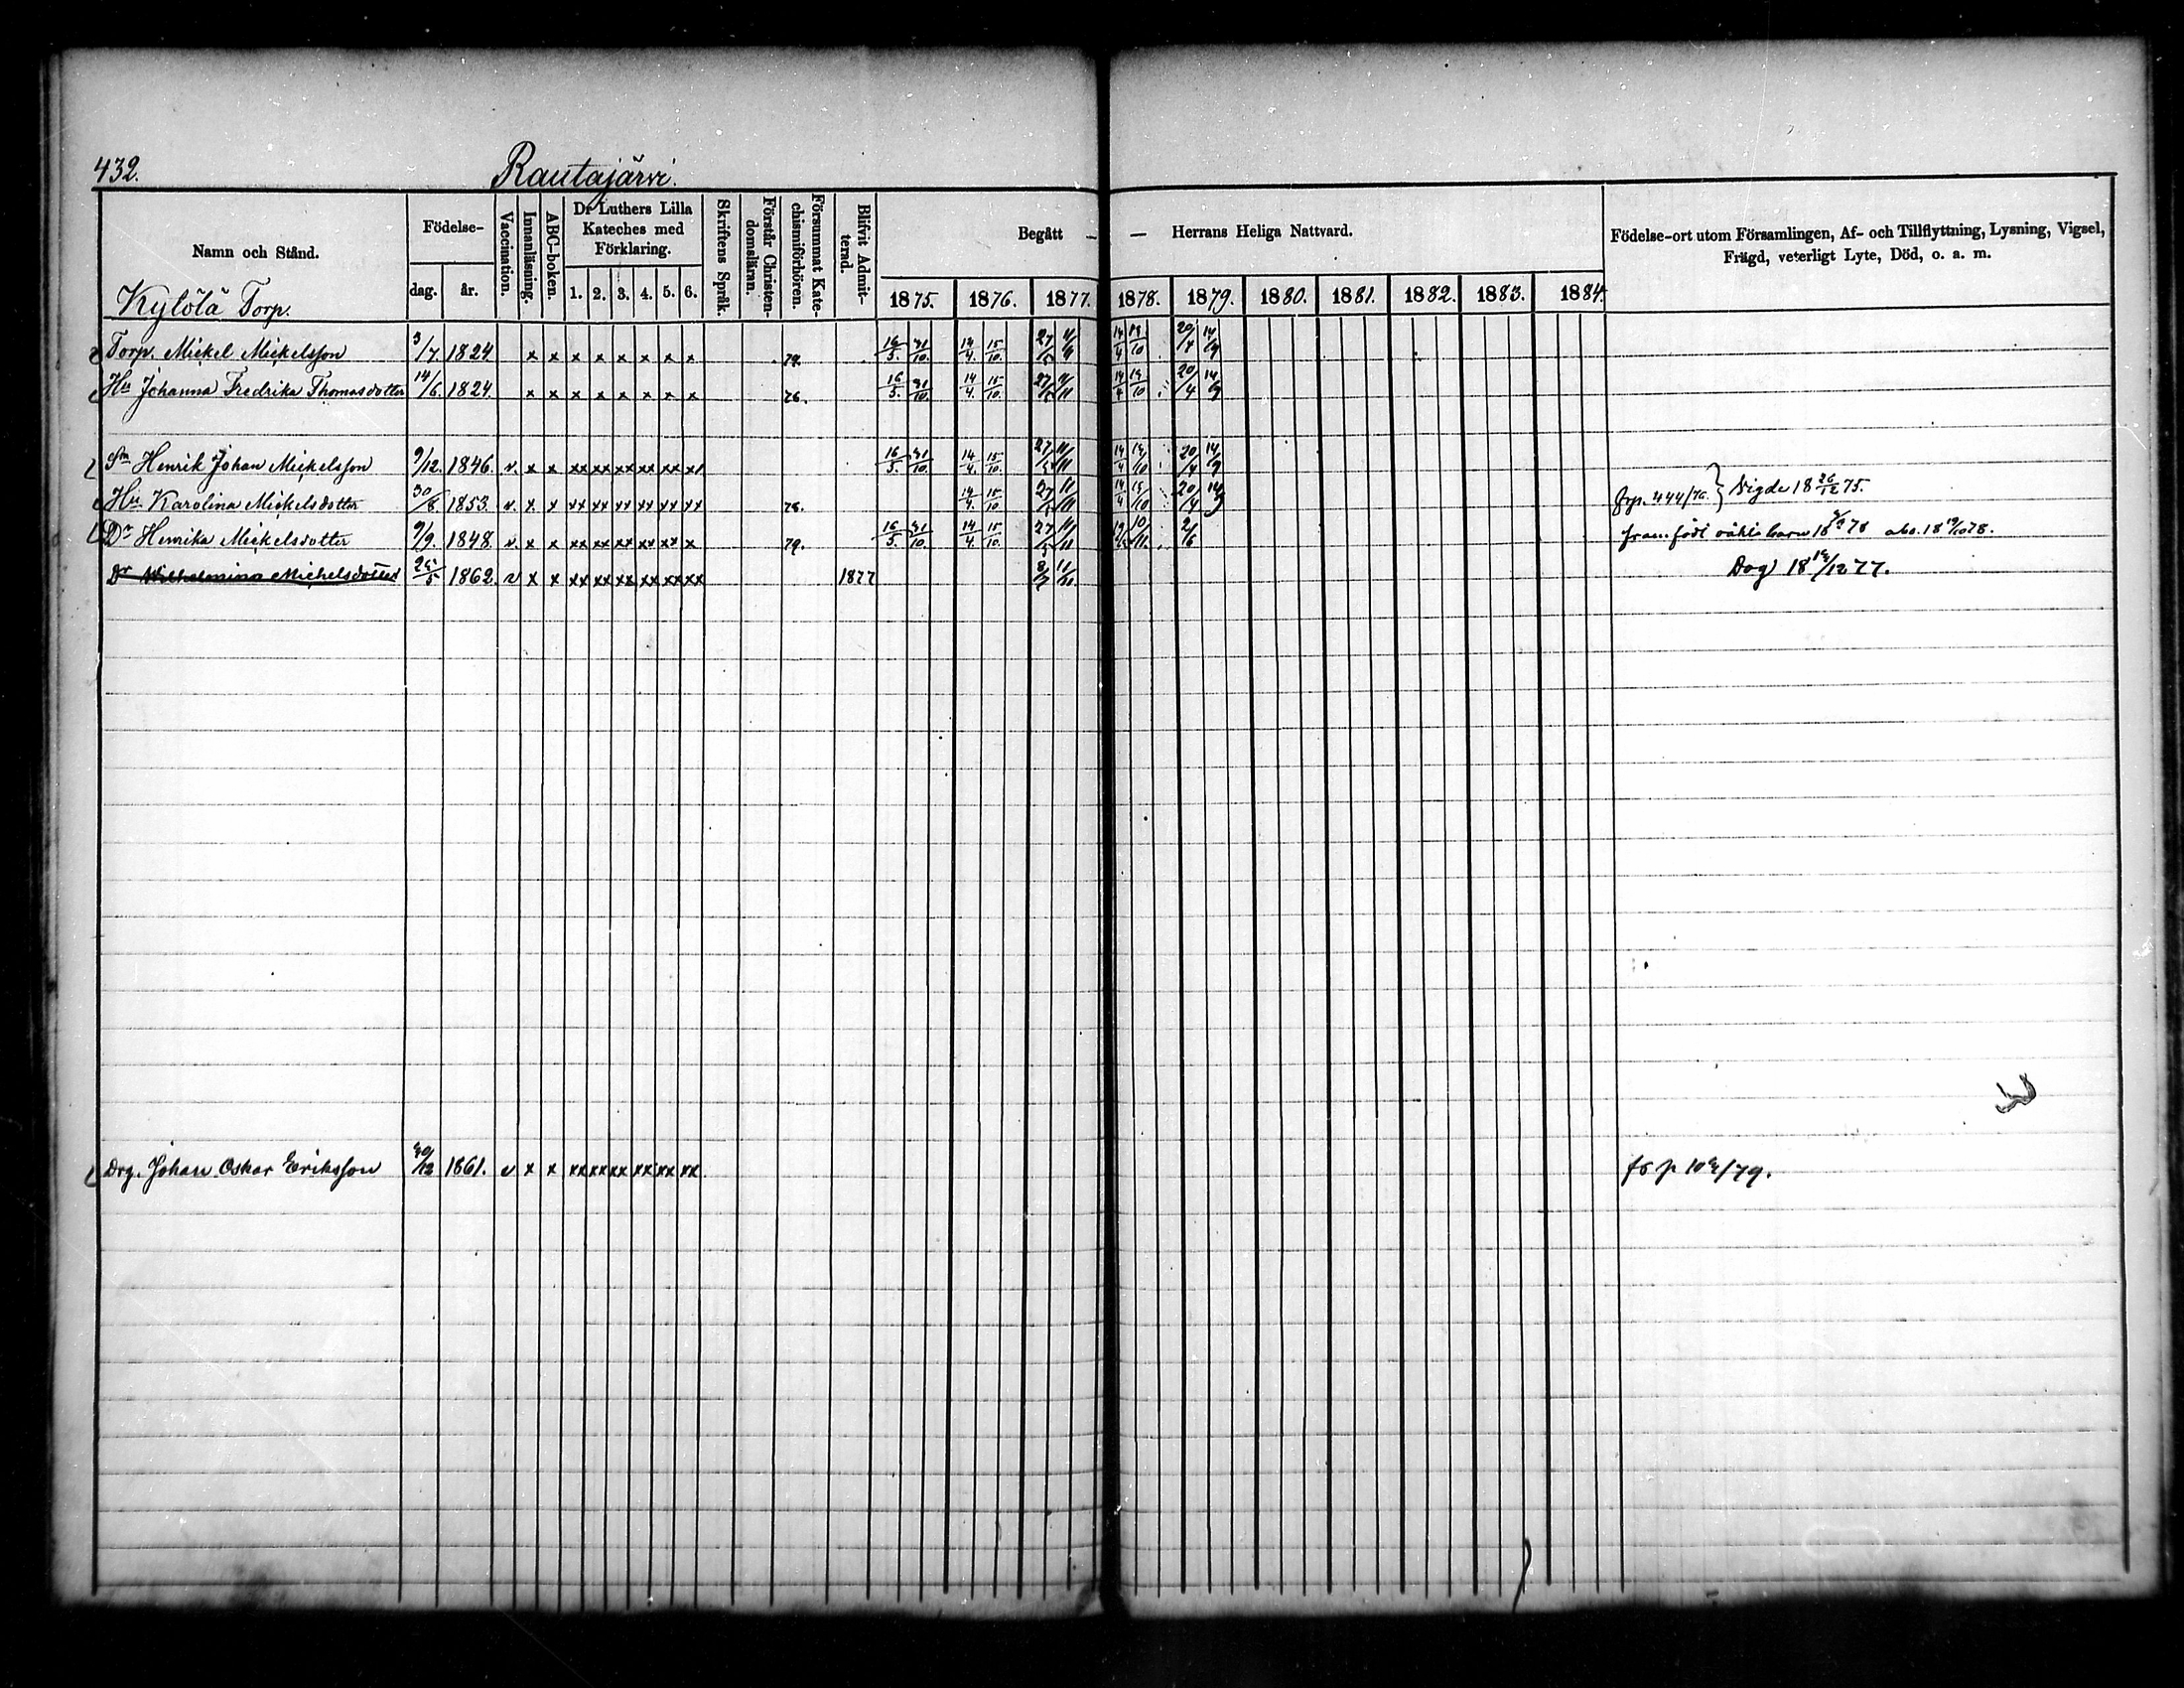 432.
Rautajärvi.
Namn och Stånd.
Kylölä Torp.
Födelse-
dag. år.
Vaccination.
Innanläsning.
ABC-boken.
Dr Luthers Lilla
Kateches med
Förklaring.
1. 2. 3. 4. 5. 6.
Skriftens Språk.
Förstår Christen-
domsläran.
Försummat Kate-
chismiförhören.
Blifvit Admit-
terad.
Begått — — Herrans Heliga Nattvard.
1875. 1876. 1877. 1878. 1879. 1880. 1881. 1882. 1883. 1884.
Födelse-ort utom Församlingen, Af- och Tillflyttning, Lysning, Vigsel,
Frägd, veterligt Lyte, Död, o. a. m.
Torp. Mickel Mickelsson 3/7 1824 x x x x x x x x 79. 16/5. 31/10. 14/4. 15/10. 14/4 20/4 14/9
Hu Johanna Fredrika Thomasdotter 14/6. 1824. x x x x x x x x 76. 16/5. 31/10. 14/4. 15/10. 14/4 20/4 14/9
Sn Henrik Johan Mickelsson 9/12. 1846. v. x x xx xx xx xx xx x 16/5. 31/10. 14/4. 15/10. 14/4 20/4 14/9
Hu Karolina Mickelsdotter 30/8 1853. v. x x xx xx xx xx xx xx 76. 14/4. 15/10. 14/4 20/4 14/9 frp. 444/76. } Vigde 18 26/12 75.
Dr Henrika Mickelsdotter 9/9. 1848. v. x x xx xx xx xx xx x 79. 16/5. 31/10. 14/4. 15/10. framfödt oäkta barn 18 78 abs. 18 78.
Dr Wilhelmina Michelsdotter 1862. v x x xx xx xx xx xx xx 1877 Dog 18 /12 77.
Drg. Johan Oskar Eriksson 30/12 1861. v x x xx xx xx xx xx xx /79.